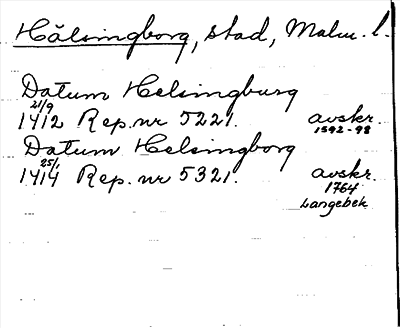 Hälsingborg, stad, Malm. l.
Datum Helsingburg
21/9
1412 Rep. nr 5221. avskr.
1592-98
Datum Helsingborg
25/1
1414 Rep. nr 5321. avskr.
1764
Langebek